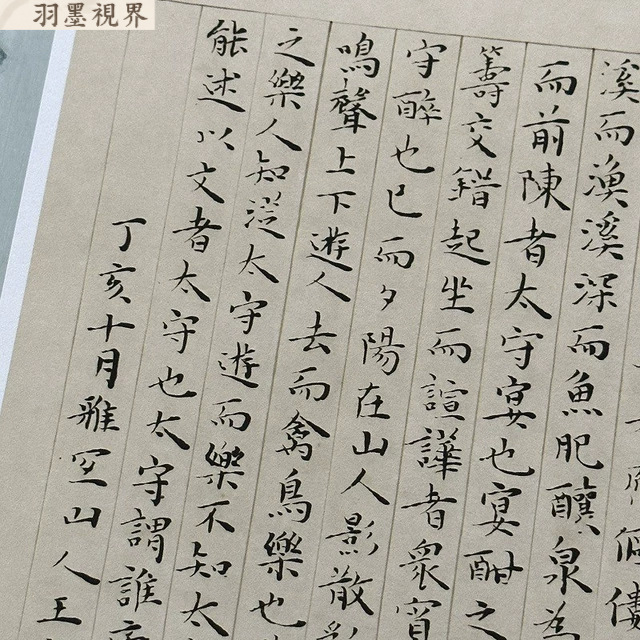 羽墨視界
傴僂
溪而漁溪深而魚肥釀泉為
而前陳者太守宴也宴酣之
籌交錯起坐而諠譁者衆賓
守醉也已而夕陽在山人影散
鳴聲上下遊人去而禽鳥樂也
之樂人知從太守遊而樂不知太
能述以文者太守也太守謂誰
丁亥十月雅宜山人王